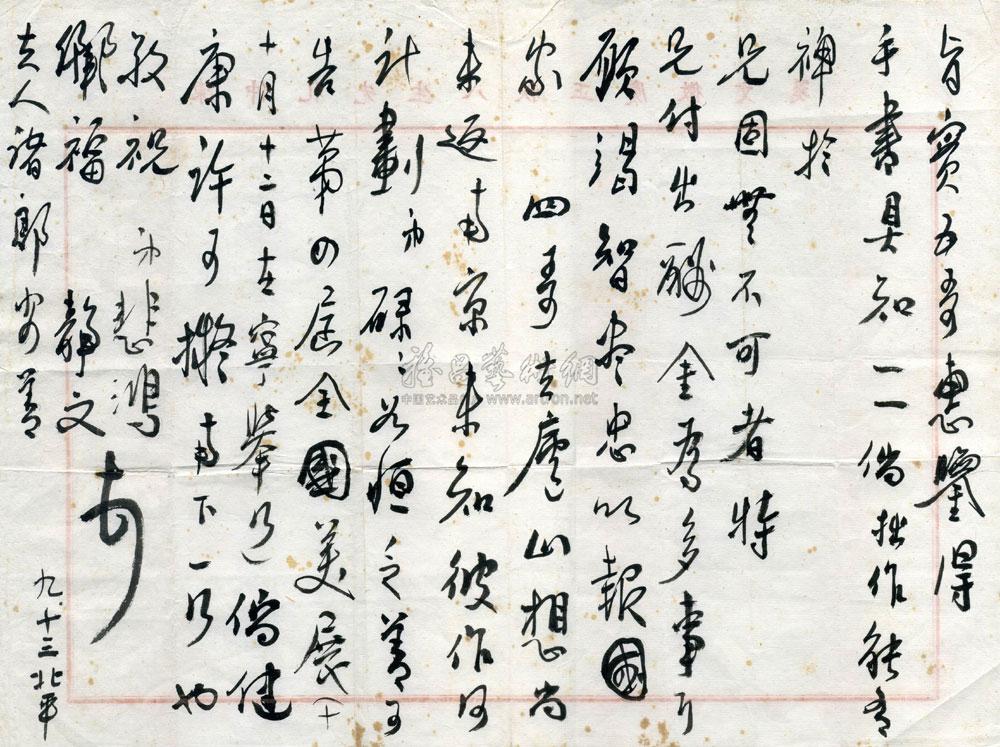 旨寶五哥惠鑒得
手書具知一一倘拙作能有
裨於
兄固無不可者特
兄付出酬金為多事耳
願竭智盡忠以報國
家 四哥去廬山想尚
未返南京未知彼作何
計劃弟碌碌如恒乏善可
告第四屆全國美展(十
十月十二日在寧舉行)倘健
康許可擬南下一行也
敬祝
儷福 弟悲鴻 靜文
夫人諸郎安善
九.十三北平
中国艺术品 www.artron.net